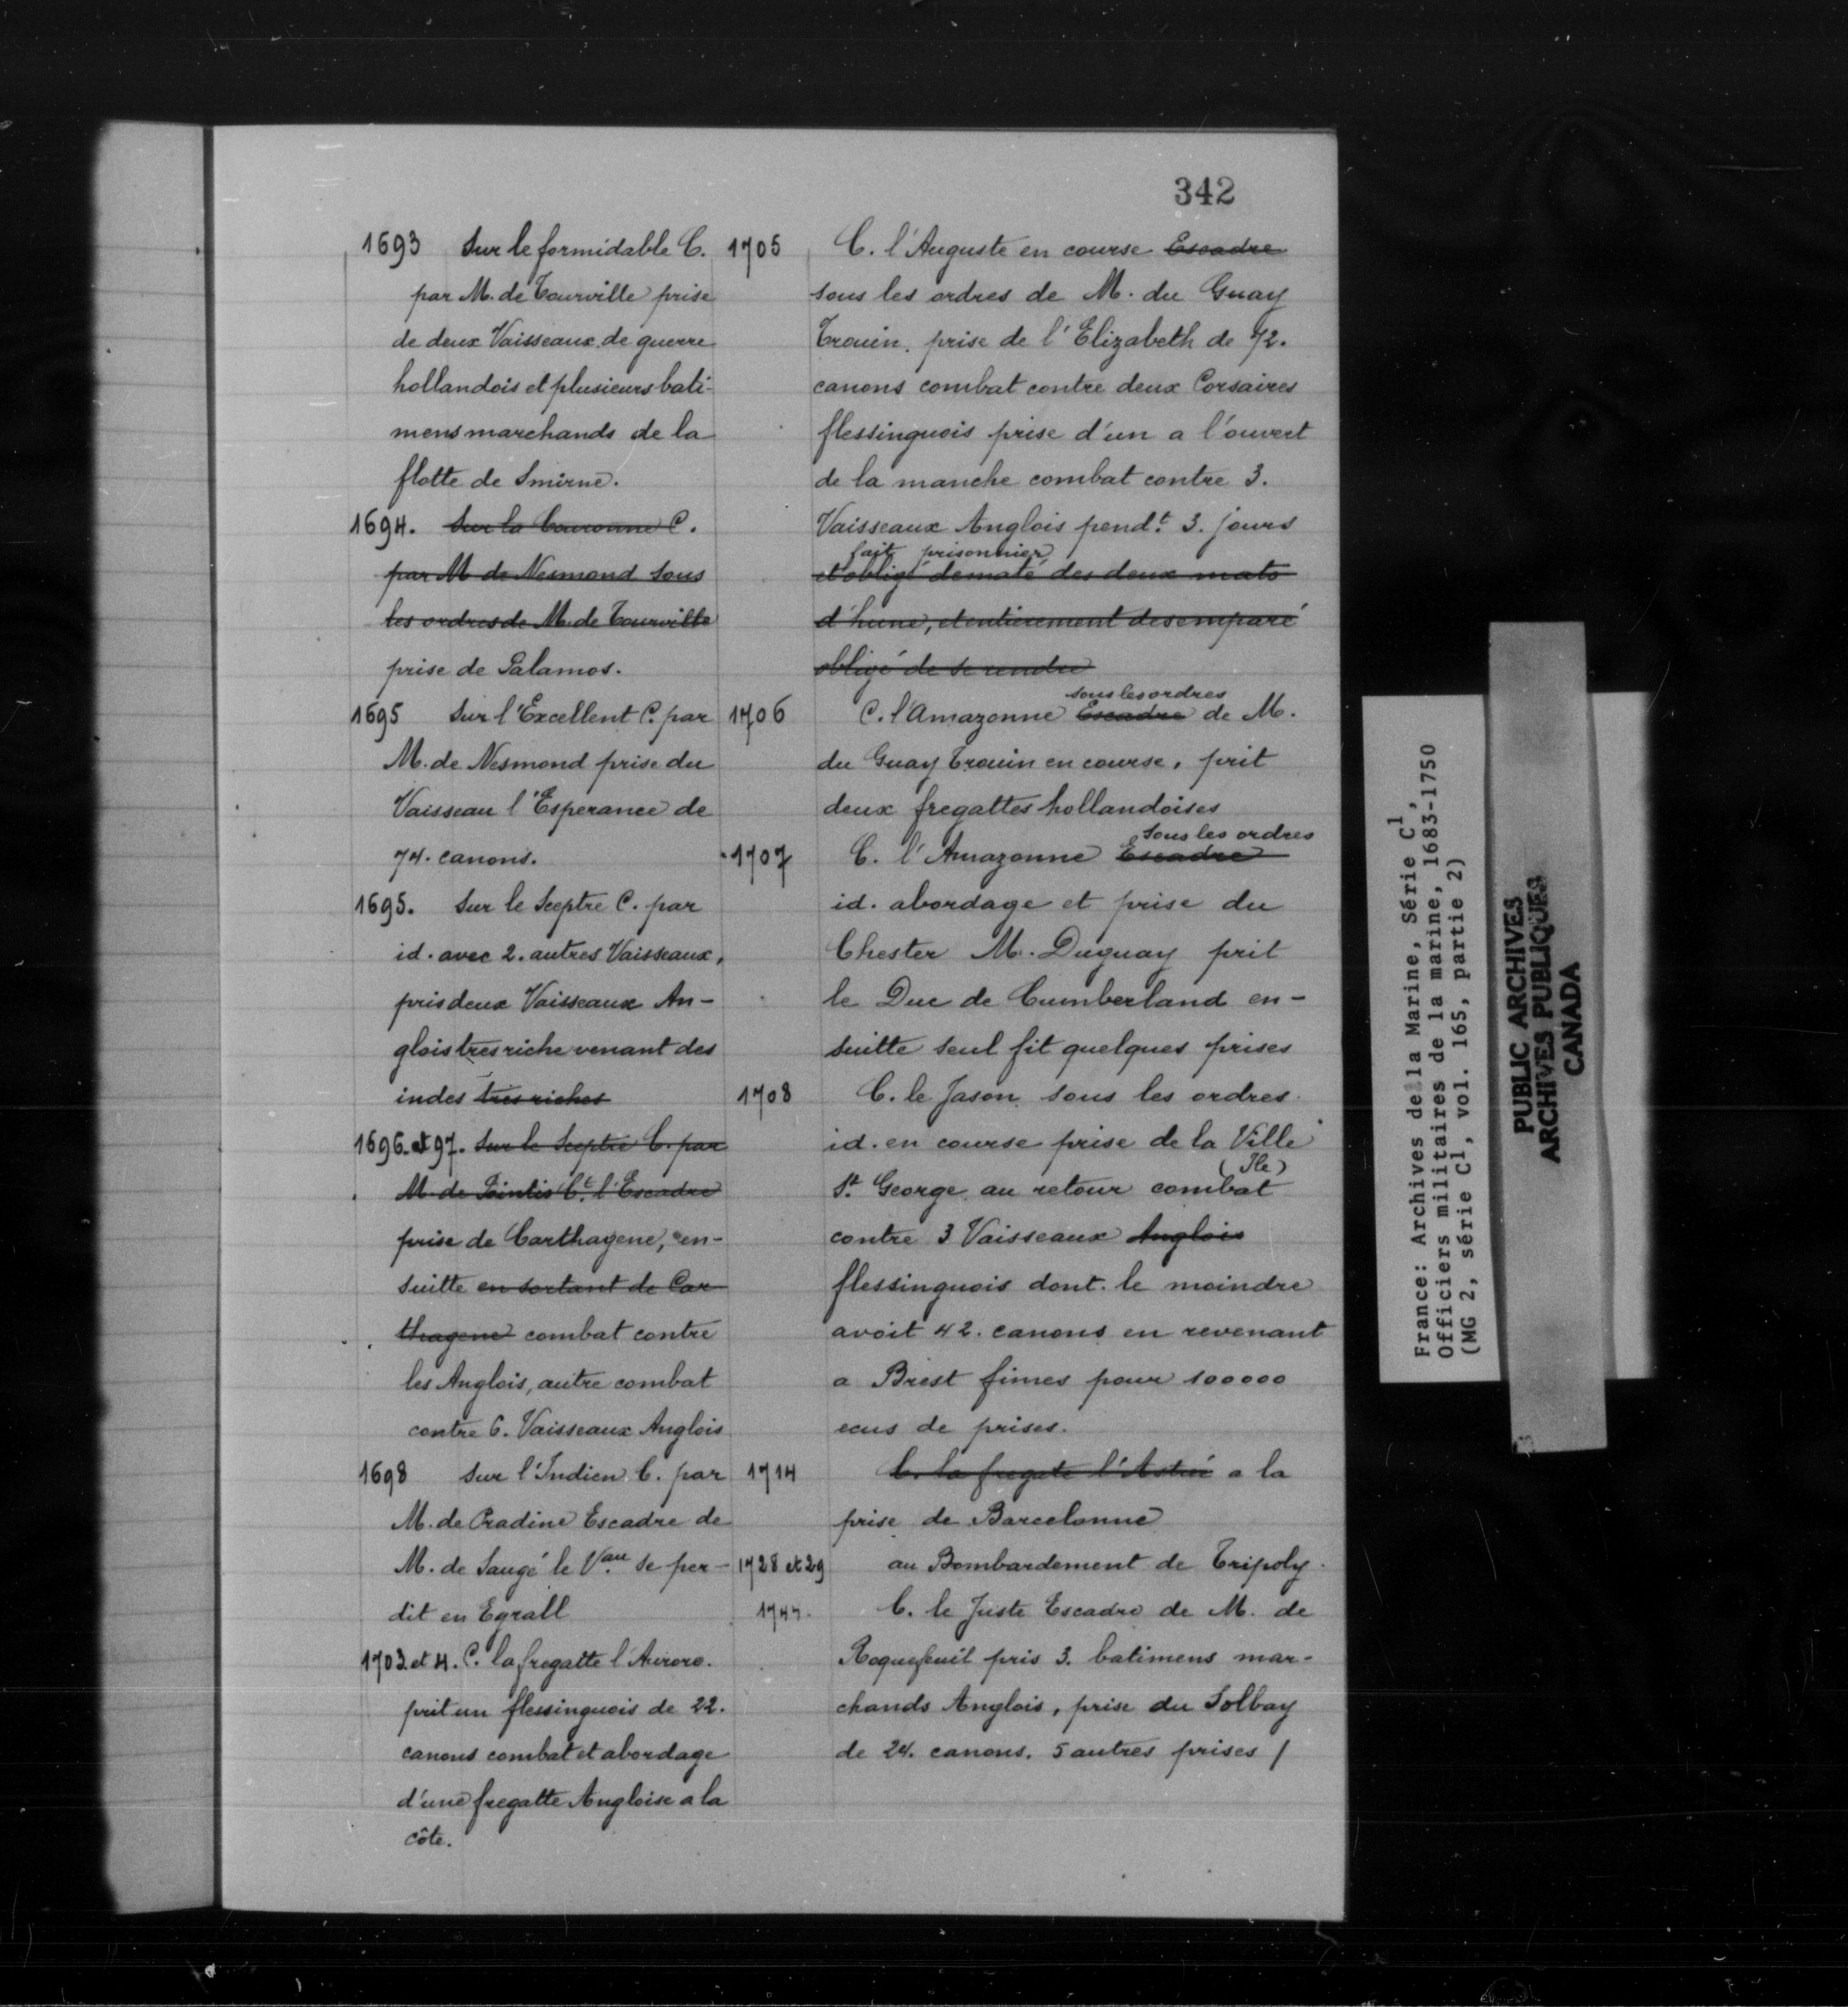 342
1693 Sur le formidable C.
par M. de Tourville prise
de deux Vaisseaux de guerre
hollandois et plusieurs bati-
mens marchands de la
flotte de Smirne.
1694. Sur la Couronne C.
par M de Nesmond sous
les ordres de M. de Tourville
prise de Palamos.
1695 Sur l'Excellent C. par
M. de Nesmond prise du
Vaisseau l'Esperance de
74. canons.
1695. Sur le Sceptre C. par
id. avec 2. autres Vaisseaux,
pris deux Vaisseaux An-
glois tres riche venant des
indes très riches
1696. et 97. Sur le Sceptre C. par
M. de Pointis Ct. l'Escadre
prise de Carthagene, en-
suitte en sortant de Car
thagene combat contre
les Anglois, autre combat
contre 6. Vaisseaux Anglois
1698 Sur l'Indien C. par
M. de Pradine Escadre de
M. de Saugé le Vau. se per-
dit en Egrall
1703. et 4. C. la fregatte l'Aurore.
prit un flessinguois de 22.
canons combat et abordage
d'une fregatte Angloise a la
côte.
1705 C. l'Auguste en course Escadre
sous les ordres de M. du Guay
Trouin. prise de l'Elizabeth de 72.
canons combat contre deux Corsaires
flessinguois prise d'un a l'ouvert
de la manche combat contre 3.
Vaisseaux Anglois pendt. 3. jours
fait prisonnier
et obligé dematé des deux mats
d'hune, et entierement desemparé
obligé de se rendre
sous les ordres
1706 C. l'Amazonne Escadre de M.
du Guay Trouin en course, prit
deux fregattes hollandoises
Sous les ordres
1707 C. l'Amazonne Escadre
id. abordage et prise du
Chester M. Duguay prit
le Duc de Cumberland en-
suitte seul fit quelques prises
1708 C. le Jason sous les ordres
id. en course prise de la Ville
(Ile)
St. George au retour combat
contre 3 Vaisseaux Anglois
flessinguois dont le moindre
avoit 42. canons en revenant
a Brest fimes pour 100000
ecus de prises.
1714 C. la fregate l'Astrée a la
prise de Barcelonne
1728 et 29 au Bombardement de Tripoly
C. le Juste Escadre de M. de
Roquefeuil pris 3. batimens mar-
chands Anglois, prise du Solbay
de 24. canons. 5 autres prises /
France: Archives de la Marine, Série C1,
Officiers militaires de la marine, 1683-1750
(MG 2, série C1, vol. 165, partie 2)
PUBLIC ARCHIVES
ARCHIVES PUBLIQUES
CANADA